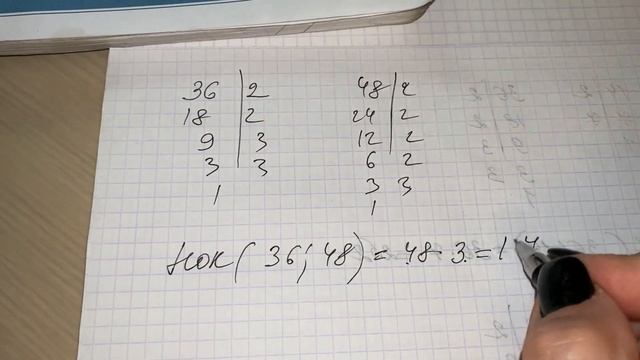 36 | 2 48 | 2
18 | 2 24 | 2
9 | 3 12 | 2
3 | 3 6 | 2
1 3 3
1
НОК ( 36 ; 48 ) = 48 · 3 = 14